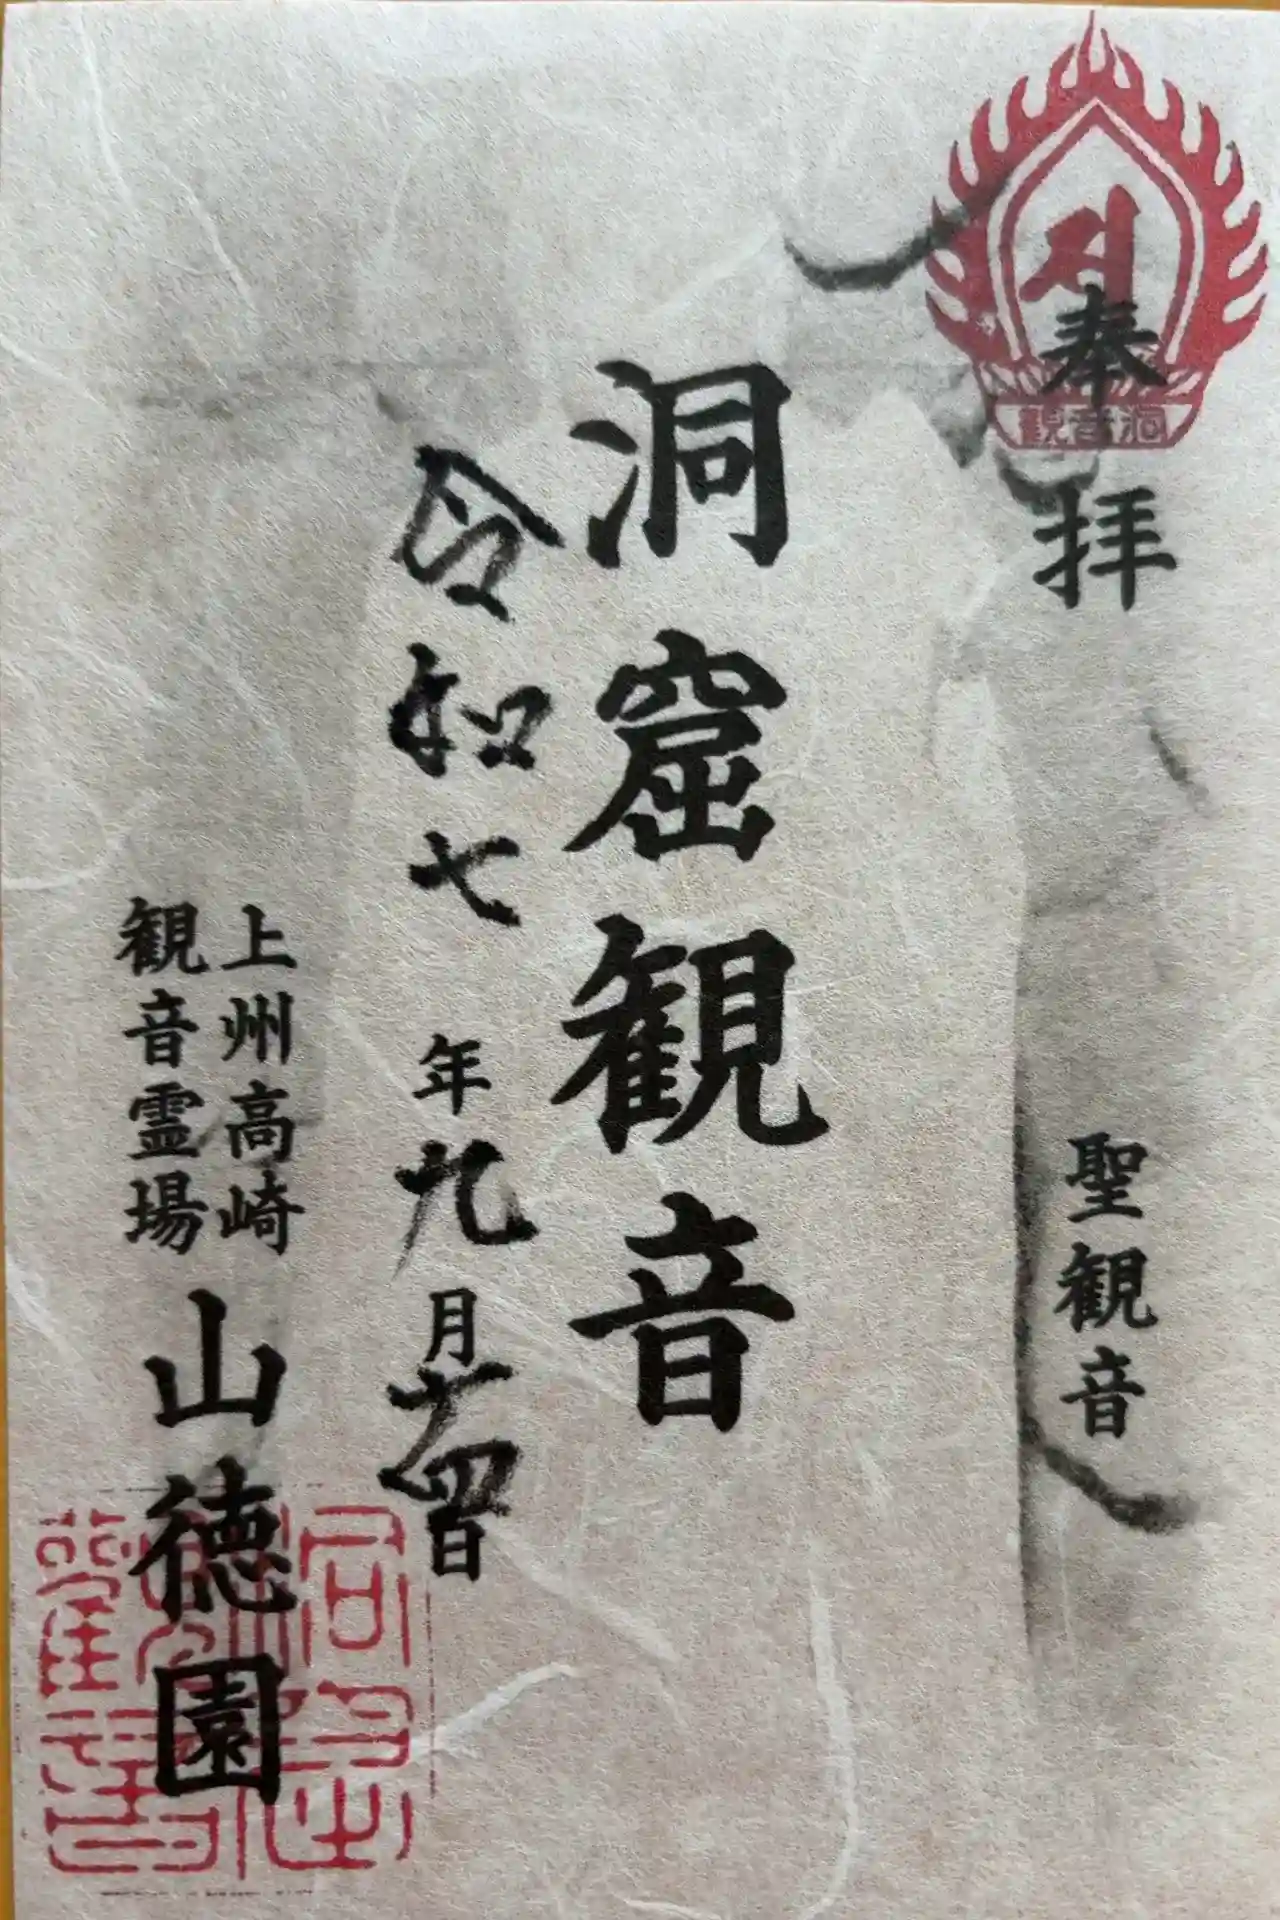 奉拝
聖観音
洞窟観音
令和七年九月十四日
上州高崎
観音霊場
山徳園